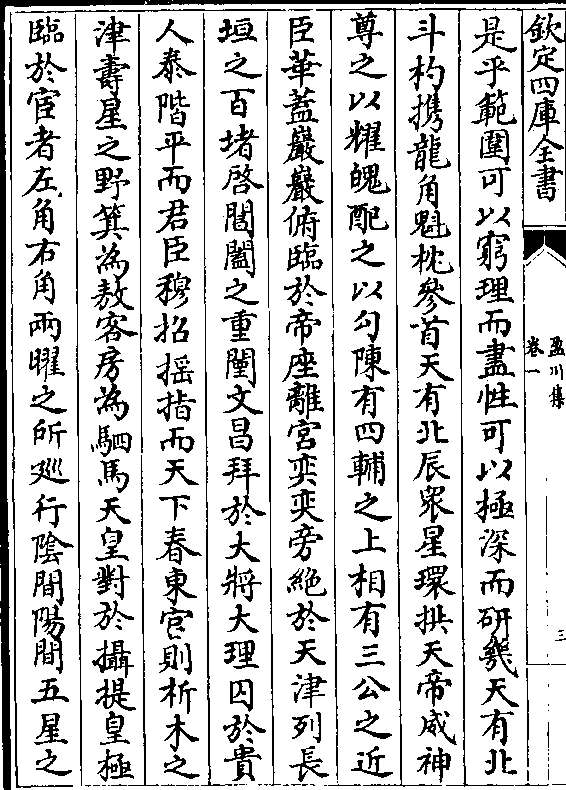 欽定四庫全書
盈川集
卷一
三
是乎範圍可以窮理而盡性可以極深而研幾天有北
斗杓携龍角魁枕參首天有北辰衆星環拱天帝威神
尊之以耀魄配之以勾陳有四輔之上相有三公之近
臣華蓋巖巖俯臨於帝座離宮奕奕旁絶於天津列長
垣之百堵啓閶闔之重闉文昌拜於大將大理囚於貴
人泰階平而君臣穆招摇指而天下春東宫則析木之
津壽星之野箕為敖客房為駟馬天皇對於攝提皇極
臨於宦者左角右角兩曜之所廵行陰間陽間五星之